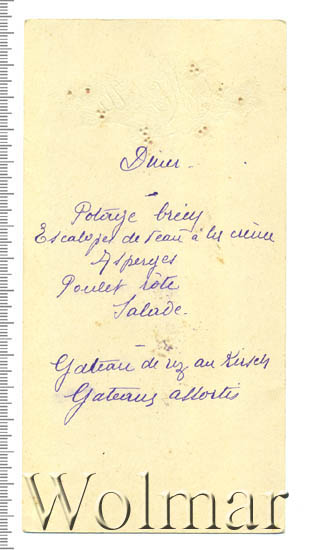 Diner
Potage Crécy
Escalopes de veau à la crème
Asperges
Poulet rôti
Salade.
Gateau de riz au Kirsch
Gateaux assortis
Wolmar